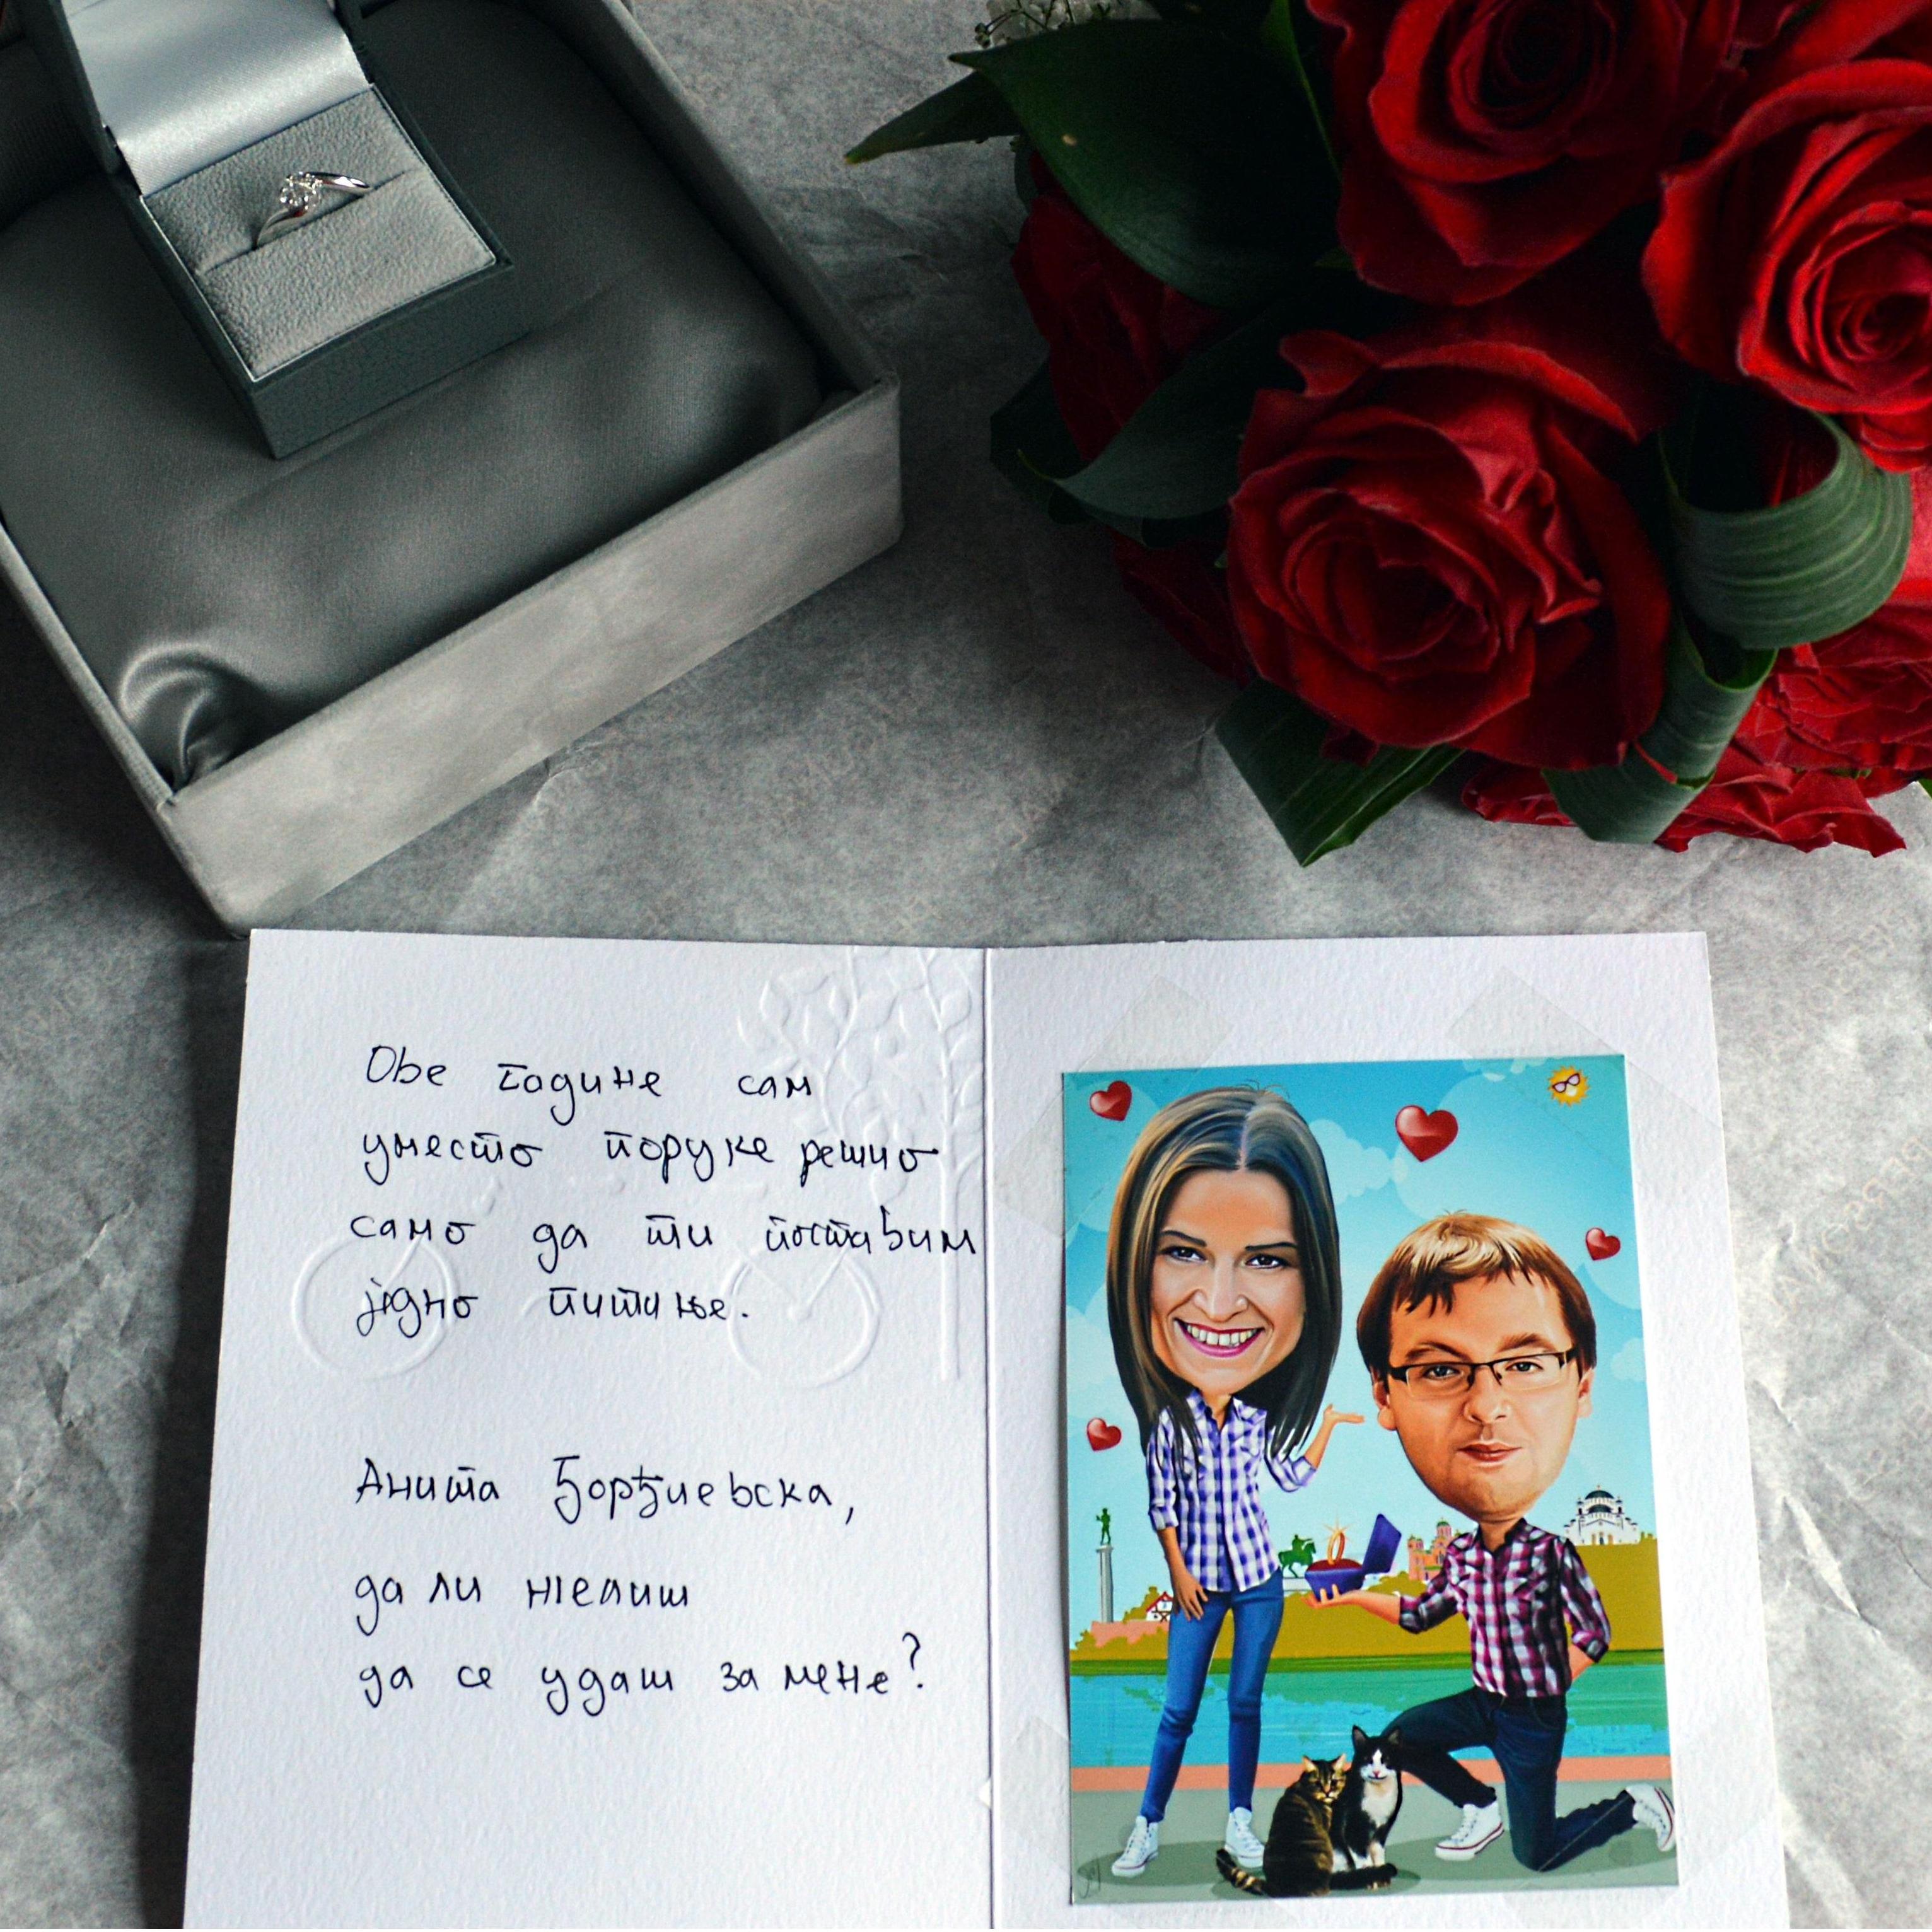 Ове године сам
уместо поруке решио
само да ти поставим
једно питање.
Анита Ђорђиевска,
да ли желиш
да се удаш за мене?